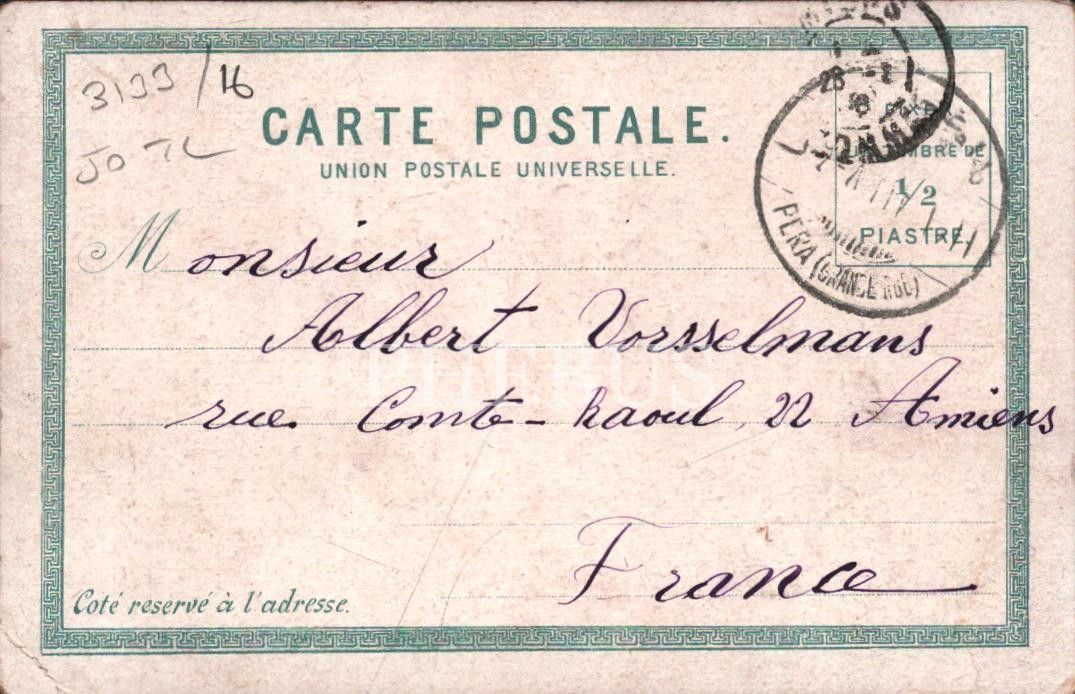 3133/16
JO TL
CARTE POSTALE.
UNION POSTALE UNIVERSELLE.
TIMBRE DE
1/2
PIASTRE
PERA (GRANDE RUE)
Monsieur
Albert Vorsselmans
rue Comte-Raoul, 22 Amiens
France
Coté reservé à l'adresse.